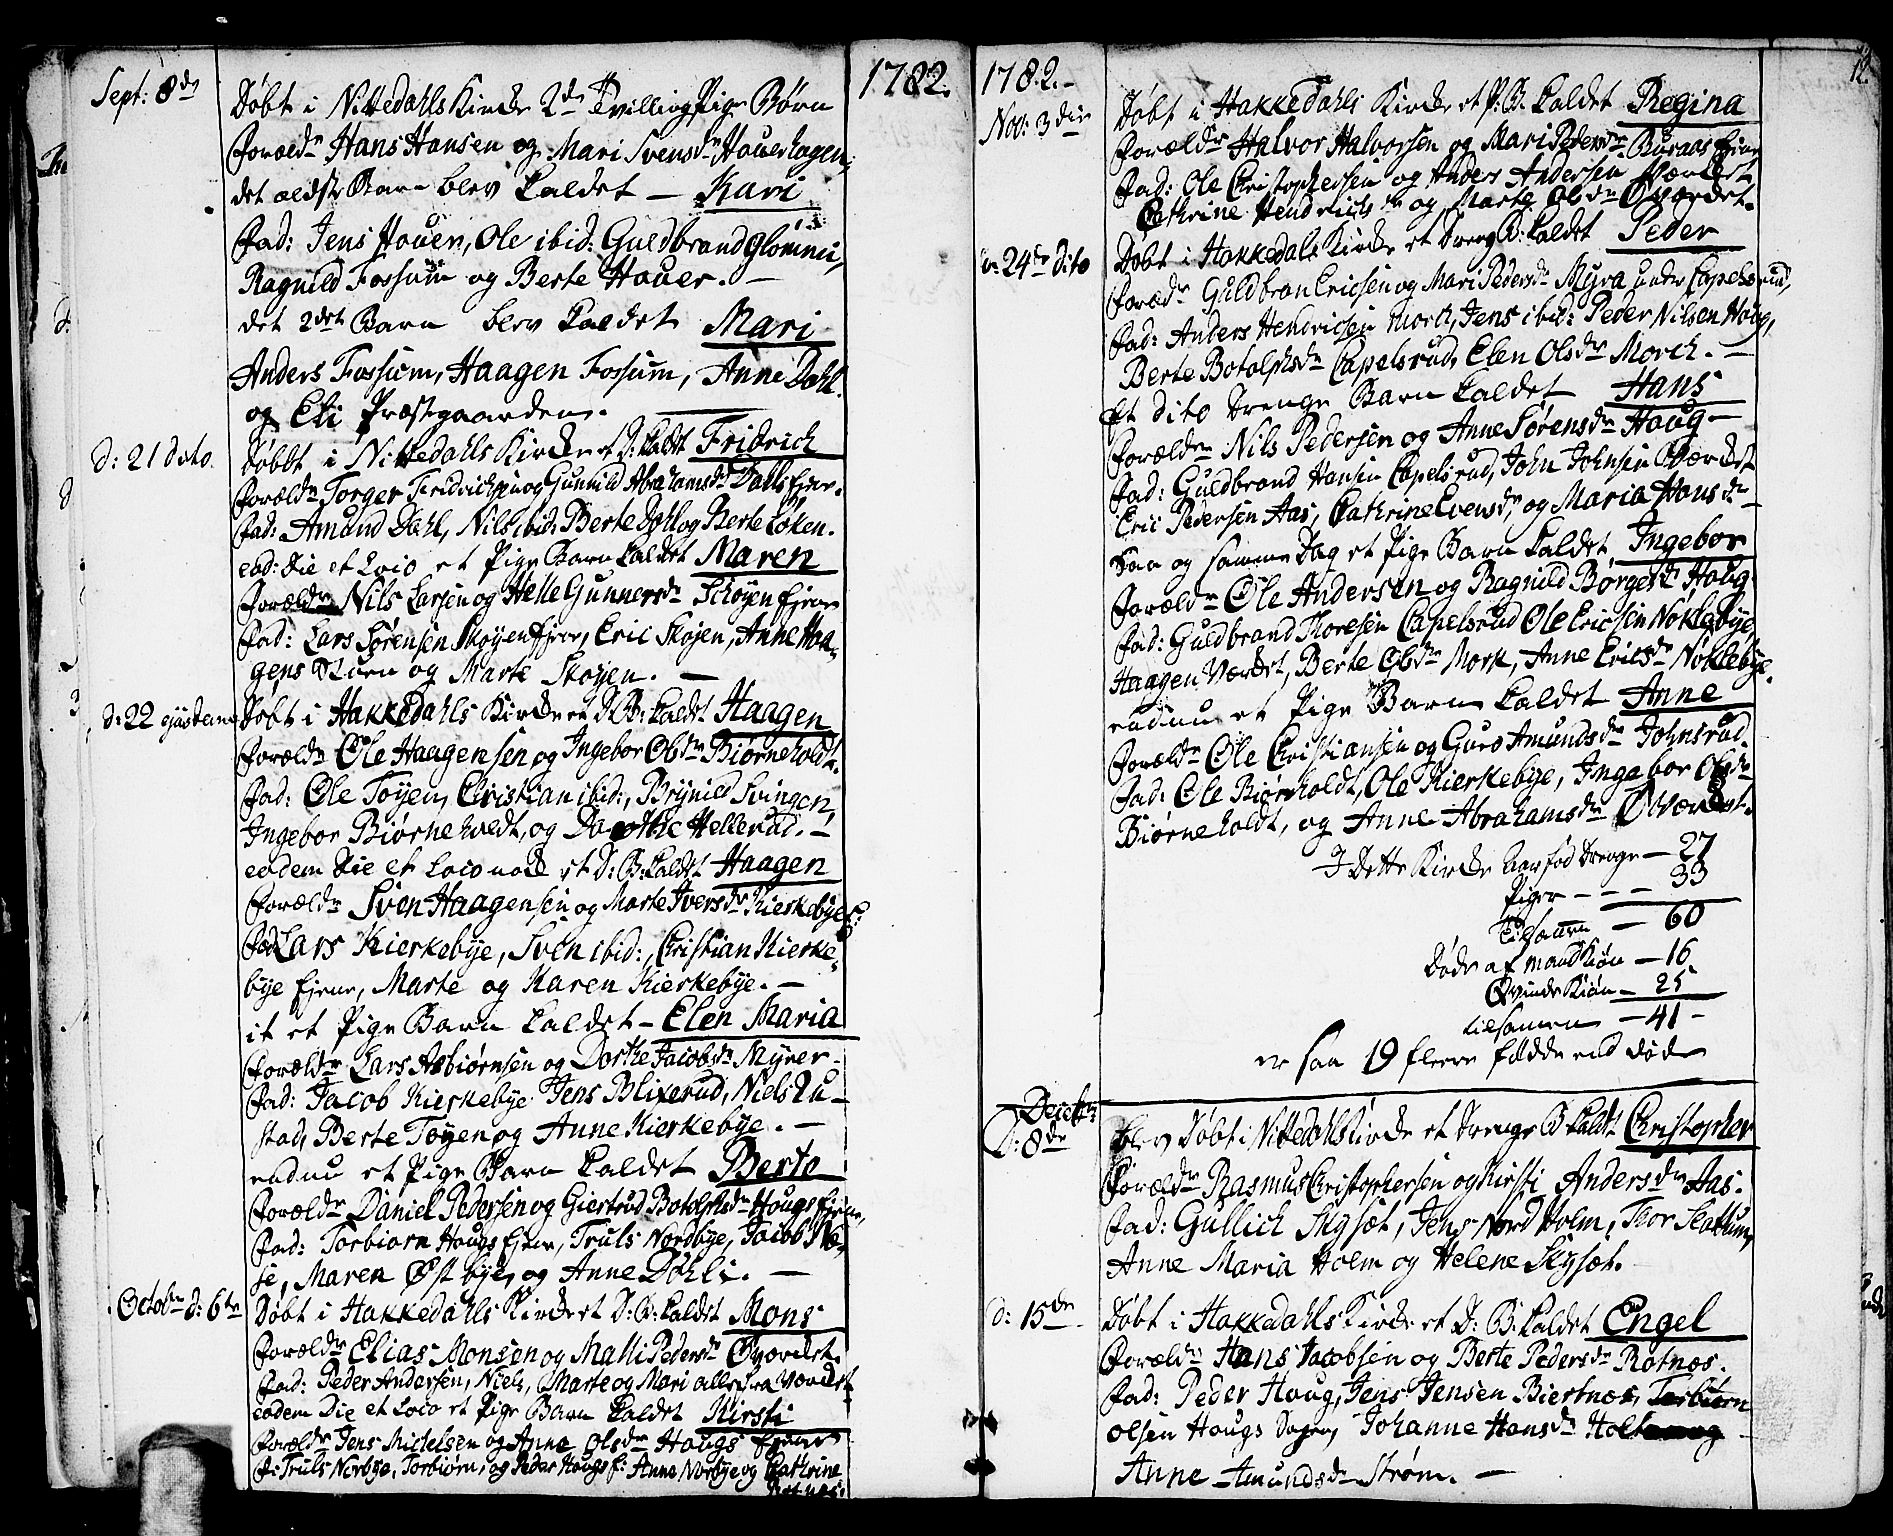 1782.
Sept: 8de
Døbt i Nittedahls Kircke 2de Tvilling Pige Børn
Forældre Hans Hansen og Mari Svensdr Hauerhagen,
det ældste Barn blev kaldet — Kari
Fad: Jens Hauer, Ole ibid: Guldbrand Glømmi,
Ragnild Fossum og Berte Hauer. —
det 2det Barn blev kaldet Mari
Anders Fossum, Haagen Fossum, Anne Dahl
og Eli Præstgaarden.
d: 21 dito.
Døbt i Nittedahls Kircke et D: kaldet Fridrich
Forældr Torger Fridrichsen og Gunnild Abrahamsdr Dahls Ejer.
Fad: Amund Dahl, Nils ibid, Berte Dahl og Berte Løken.
eod: die et Loco et Pige Barn kaldet Maren
Forældre Nils Larsen og Helle Gunnersdr Schøyen Ejer
Fad: Lars Sørensen Skøyen Ejer, Eric Skøjen, Anne Haa-
gens Stuen og Marte Skøyen. —
d: 22 ejusdem
Døbt i Hakkedahls Kircke et D: B: kaldet Haagen
Forældr Ole Haagensen og Ingebor Olsdr Biørneholdt.
Fad: Ole Tøyen, Christian ibid:, Brynild Svingen,
Ingebor Biørneholdt, og Dorthe Hellerud. —
eodem Die et Loco nok et D: B: kaldet Haagen
Forældr Sven Haagensen og Marte Iversdr Kierkebye E:
Fad: Lars Kierkebye, Sven ibid:, Christian Kierke-
bye Ejene, Marte og Karen Kierkebye. —
it et Pige Barn kaldet — Elen Maria
Forældr Lars Asbiørnsen og Dorthe Jacobsdr Myrer
Fad: Jacob Kierkebye Jens Blixerud, Niels Ru-
stad, Berte Tøyen og Anne Kierkebye. —
endnu et Pige Barn kaldet Berte
Forældr Daniel Pedersen og Giertrud Botolphsdr Hougs Ejene,
Fad: Torbiørn Hougs Ejene, Truls Nordbye, Jacob Næ-
se, Maren Østbye, og Anne Dahli. —
Octobr d: 6te
Døbt i Hakkedahls Kircke et D: B: kaldet Mons
Forældr Elias Monsen og Malli Pedersdr Øværdet.
Fad: Peder Andersen, Niels, Marte og Mari alle fra Værdet
eodem Die et Loco et Pige Barn kaldet Kirsti
Forældr Jens Michelsen og Anne Olsdr Hougs Ejene
F: Truls Norbye, Torbiørn, og Peder Hougs E: Anne Norbye og Cathrine
Rotnes.
1782.
Nov: 3die
Døbt i Hakkedahls Kircke et P: B: kaldet Regina
Forældr Halvor Halvorsen og Mari Pedersdr Buraas Ejene
Fad: Ole Christophersen og Anders Andersen Værdet
Cathrine Hendrichsdr og Marte Olsdr Øværdet.
d: 24de dito
Døbt i Hakkedals Kircke et Dreng B: kaldet Peder
Forældr Guldbran Ericsen og Mari Pedersdr Myra under Capelsrud,
Fad: Anders Hendricsen Morch, Jens ibid: Peder Nilsen Houg,
Berte Botolphsdr Capelsrud, Elen Olsdr Morch. —
Et dito Drenge Barn kaldet Hans
Forældr Nils Pedersen og Anne Sørensdr Haug —
Fad: Guldbrand Hansen Capelsrud, John Johnsen Øværdet
Eric Pedersen Aas, Cathrine Evensdr, og Maria Hansdr
Saa og samme Dag et Pige Barn kaldet Ingebor
Forældr Ole Andersen og Ragnild Børgesdr Haug
Fad: Guldbrand Thoresen Capelsrud Ole Ericsen Nøklebye
Haagen Værdet, Berte Olsdr Mork, Anne Ericsdr Nøklebye.
endnu et Pige Barn kaldet Anne
Forældr Ole Christiansen og Guro Amundsdr Johnsrud.
Fad: Ole Biørnholdt, Ole Kierkebye, Ingebor Olsdr
Biørneholdt, og Anne Abrahamsdr Øværdet.
I Dette Kircke Aar fød Drenge — 27
Piger — — — 33
Tilsamen — 60
Døde af Mandkiøn — 16
Qvinde Kiøn — 25
tilsamen — 41 —
er saa 19 flere fødde end døde
Decebr
D: 8de
blev Døbt i Nittedahls Kircke et Drenge B kaldt Christopher
Forældr Rasmus Christophersen og Kirsti Andersdr Aas.
Fad: Gullich Skyset, Jens Nord Holm, Thor Slattum,
Anne Maria Holm og Helene Skyset.
d: 15de
Døbt i Hakkedahls Kircke et D: B: kaldet Engel
Forældr Hans Jacobsen og Berte Pedersdr Rotnes.
Fad: Peder Houg, Jens Jensen Biertnes, Torbiørn
Olsen Hougs Ejene, Johanne Hansdr Holt og
Anne Amundsdr Strøm. —